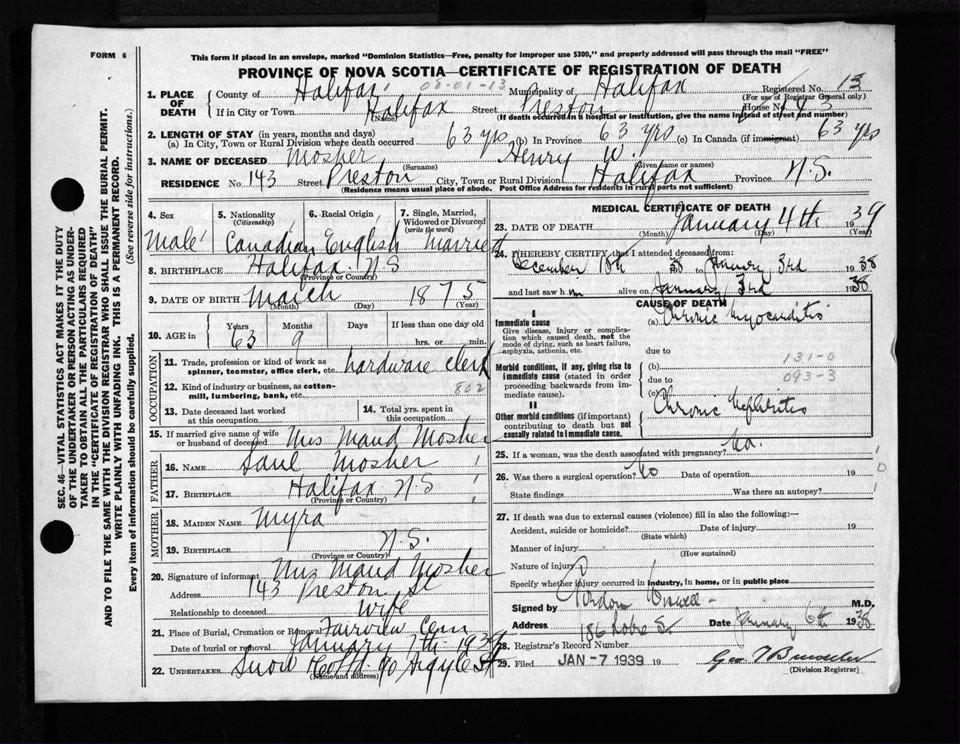 FORM 6
This form if placed in an envelope, marked "Dominion Statistics—Free, penalty for improper use $300," and properly addressed will pass through the mail "FREE"
PROVINCE OF NOVA SCOTIA—CERTIFICATE OF REGISTRATION OF DEATH
SEC. 46—VITAL STATISTICS ACT MAKES IT THE DUTY
OF THE UNDERTAKER OR PERSON ACTING AS UNDER-
TAKER TO OBTAIN ALL THE PARTICULARS REQUIRED
IN THE "CERTIFICATE OF REGISTRATION OF DEATH"
AND TO FILE THE SAME WITH THE DIVISION REGISTRAR WHO SHALL ISSUE THE BURIAL PERMIT.
WRITE PLAINLY WITH UNFADING INK. THIS IS A PERMANENT RECORD.
Every item of information should be carefully supplied. (See reverse side for instructions.)
08-01-13
1. PLACE OF DEATH County of Halifax Municipality of Halifax Registered No. 13
(For use of Registrar General only)
If in City or Town Halifax (Name) Street Preston House No. 143
(If death occurred in a hospital or institution, give the name instead of street and number)
2. LENGTH OF STAY (in years, months and days)
(a) In City, Town or Rural Division where death occurred 63 yrs (b) In Province 63 yrs (c) In Canada (if immigrant) 63 yrs
3. NAME OF DECEASED Mosher Henry W.
(Surname) (Given name or names)
RESIDENCE No 143 Street Preston City, Town or Rural Division Halifax Province N.S.
(Residence means usual place of abode. Post Office Address for residents in rural parts not sufficient)
4. Sex 5. Nationality (Citizenship) 6. Racial Origin 7. Single, Married, Widowed or Divorced (write the word)
Male Canadian English Married
8. BIRTHPLACE Halifax N S
(Province or Country)
9. DATE OF BIRTH March 1875
(Month) (Day) (Year)
10. AGE in Years Months Days If less than one day old
63 9 hrs. or min.
OCCUPATION
11. Trade, profession or kind of work as spinner, teamster, office clerk, etc. Hardware Clerk
12. Kind of industry or business, as cotton-mill, lumbering, bank, etc. 802
13. Date deceased last worked at this occupation 14. Total yrs. spent in this occupation
15. If married give name of wife or husband of deceased Mrs Maud Mosher
FATHER
16. NAME Saul Mosher
17. BIRTHPLACE Halifax N S
(Province or Country)
MOTHER
18. MAIDEN NAME Myra
19. BIRTHPLACE N.S.
(Province or Country)
20. Signature of informant Mrs Maud Mosher
Address 143 Preston St
Relationship to deceased Wife
21. Place of Burial, Cremation or Removal Fairview Cem
Date of burial or removal January 7th 1939
22. UNDERTAKER Snow 90 Argyle St
(Name and address)
MEDICAL CERTIFICATE OF DEATH
23. DATE OF DEATH January 4th 1939
(Month) (Day) (Year)
24. I HEREBY CERTIFY that I attended deceased from:
December 18th 38 to January 3rd 1938
and last saw him alive on January 3rd 1938
CAUSE OF DEATH
I
Immediate cause
Give disease, injury or complication which caused death, not the mode of dying, such as heart failure, asphyxia, asthenia, etc.
(a) Chronic Myocarditis
due to
131-0
Morbid conditions, if any, giving rise to immediate cause (stated in order proceeding backwards from immediate cause).
(b)
due to 093-3
(c)
II
Other morbid conditions (if important) contributing to death but not causally related to immediate cause.
Chronic Nephritis
25. If a woman, was the death associated with pregnancy?
26. Was there a surgical operation? No Date of operation 19
State findings Was there an autopsy?
27. If death was due to external causes (violence) fill in also the following:—
Accident, suicide or homicide? Date of injury 19
(State which)
Manner of injury
(How sustained)
Nature of injury
Specify whether injury occurred in industry, in home, or in public place
Signed by Gordon M.D.
Address 186 Robie St Date January 6th 1938
28. Registrar's Record Number
29. Filed JAN -7 1939 19
(Division Registrar)